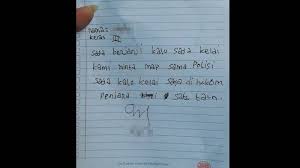 Nama:
Keras III
saya berjanji kalu saya kelai
kami minta map sama Polisi
saya kalu kelai saya di hukom
penjara satu taun